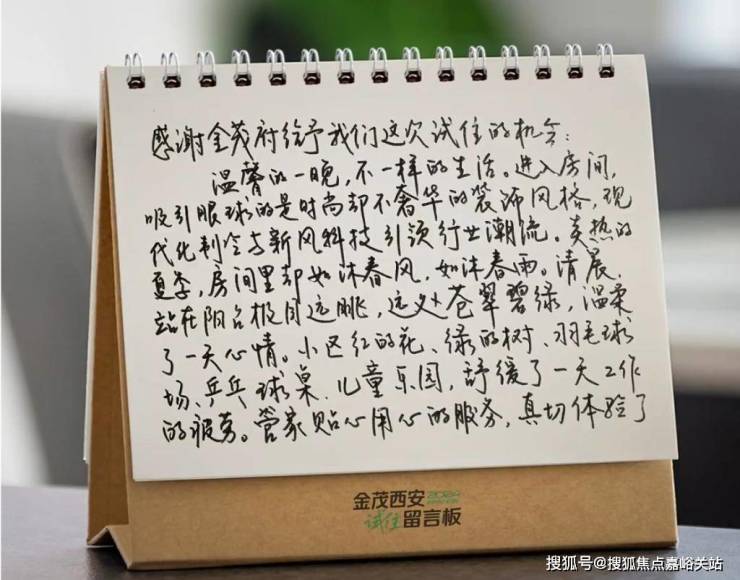 感谢金茂府给予我们这次试住的机会：
温馨的一晚，不一样的生活。进入房间，
吸引眼球的是时尚却不奢华的装饰风格，现
代化制冷与新风科技引领行业潮流。炎热的
夏季，房间里却如沐春风，如沐春雨。清晨，
站在阳台极目远眺，远处苍翠碧绿，温柔
了一天心情。小区红的花、绿的树、羽毛球
场、乒乓球桌、儿童乐园，舒缓了一天工作
的疲劳。管家贴心用心的服务，真切体验了
金茂西安2024
试住留言板
搜狐号@搜狐焦点嘉峪关站